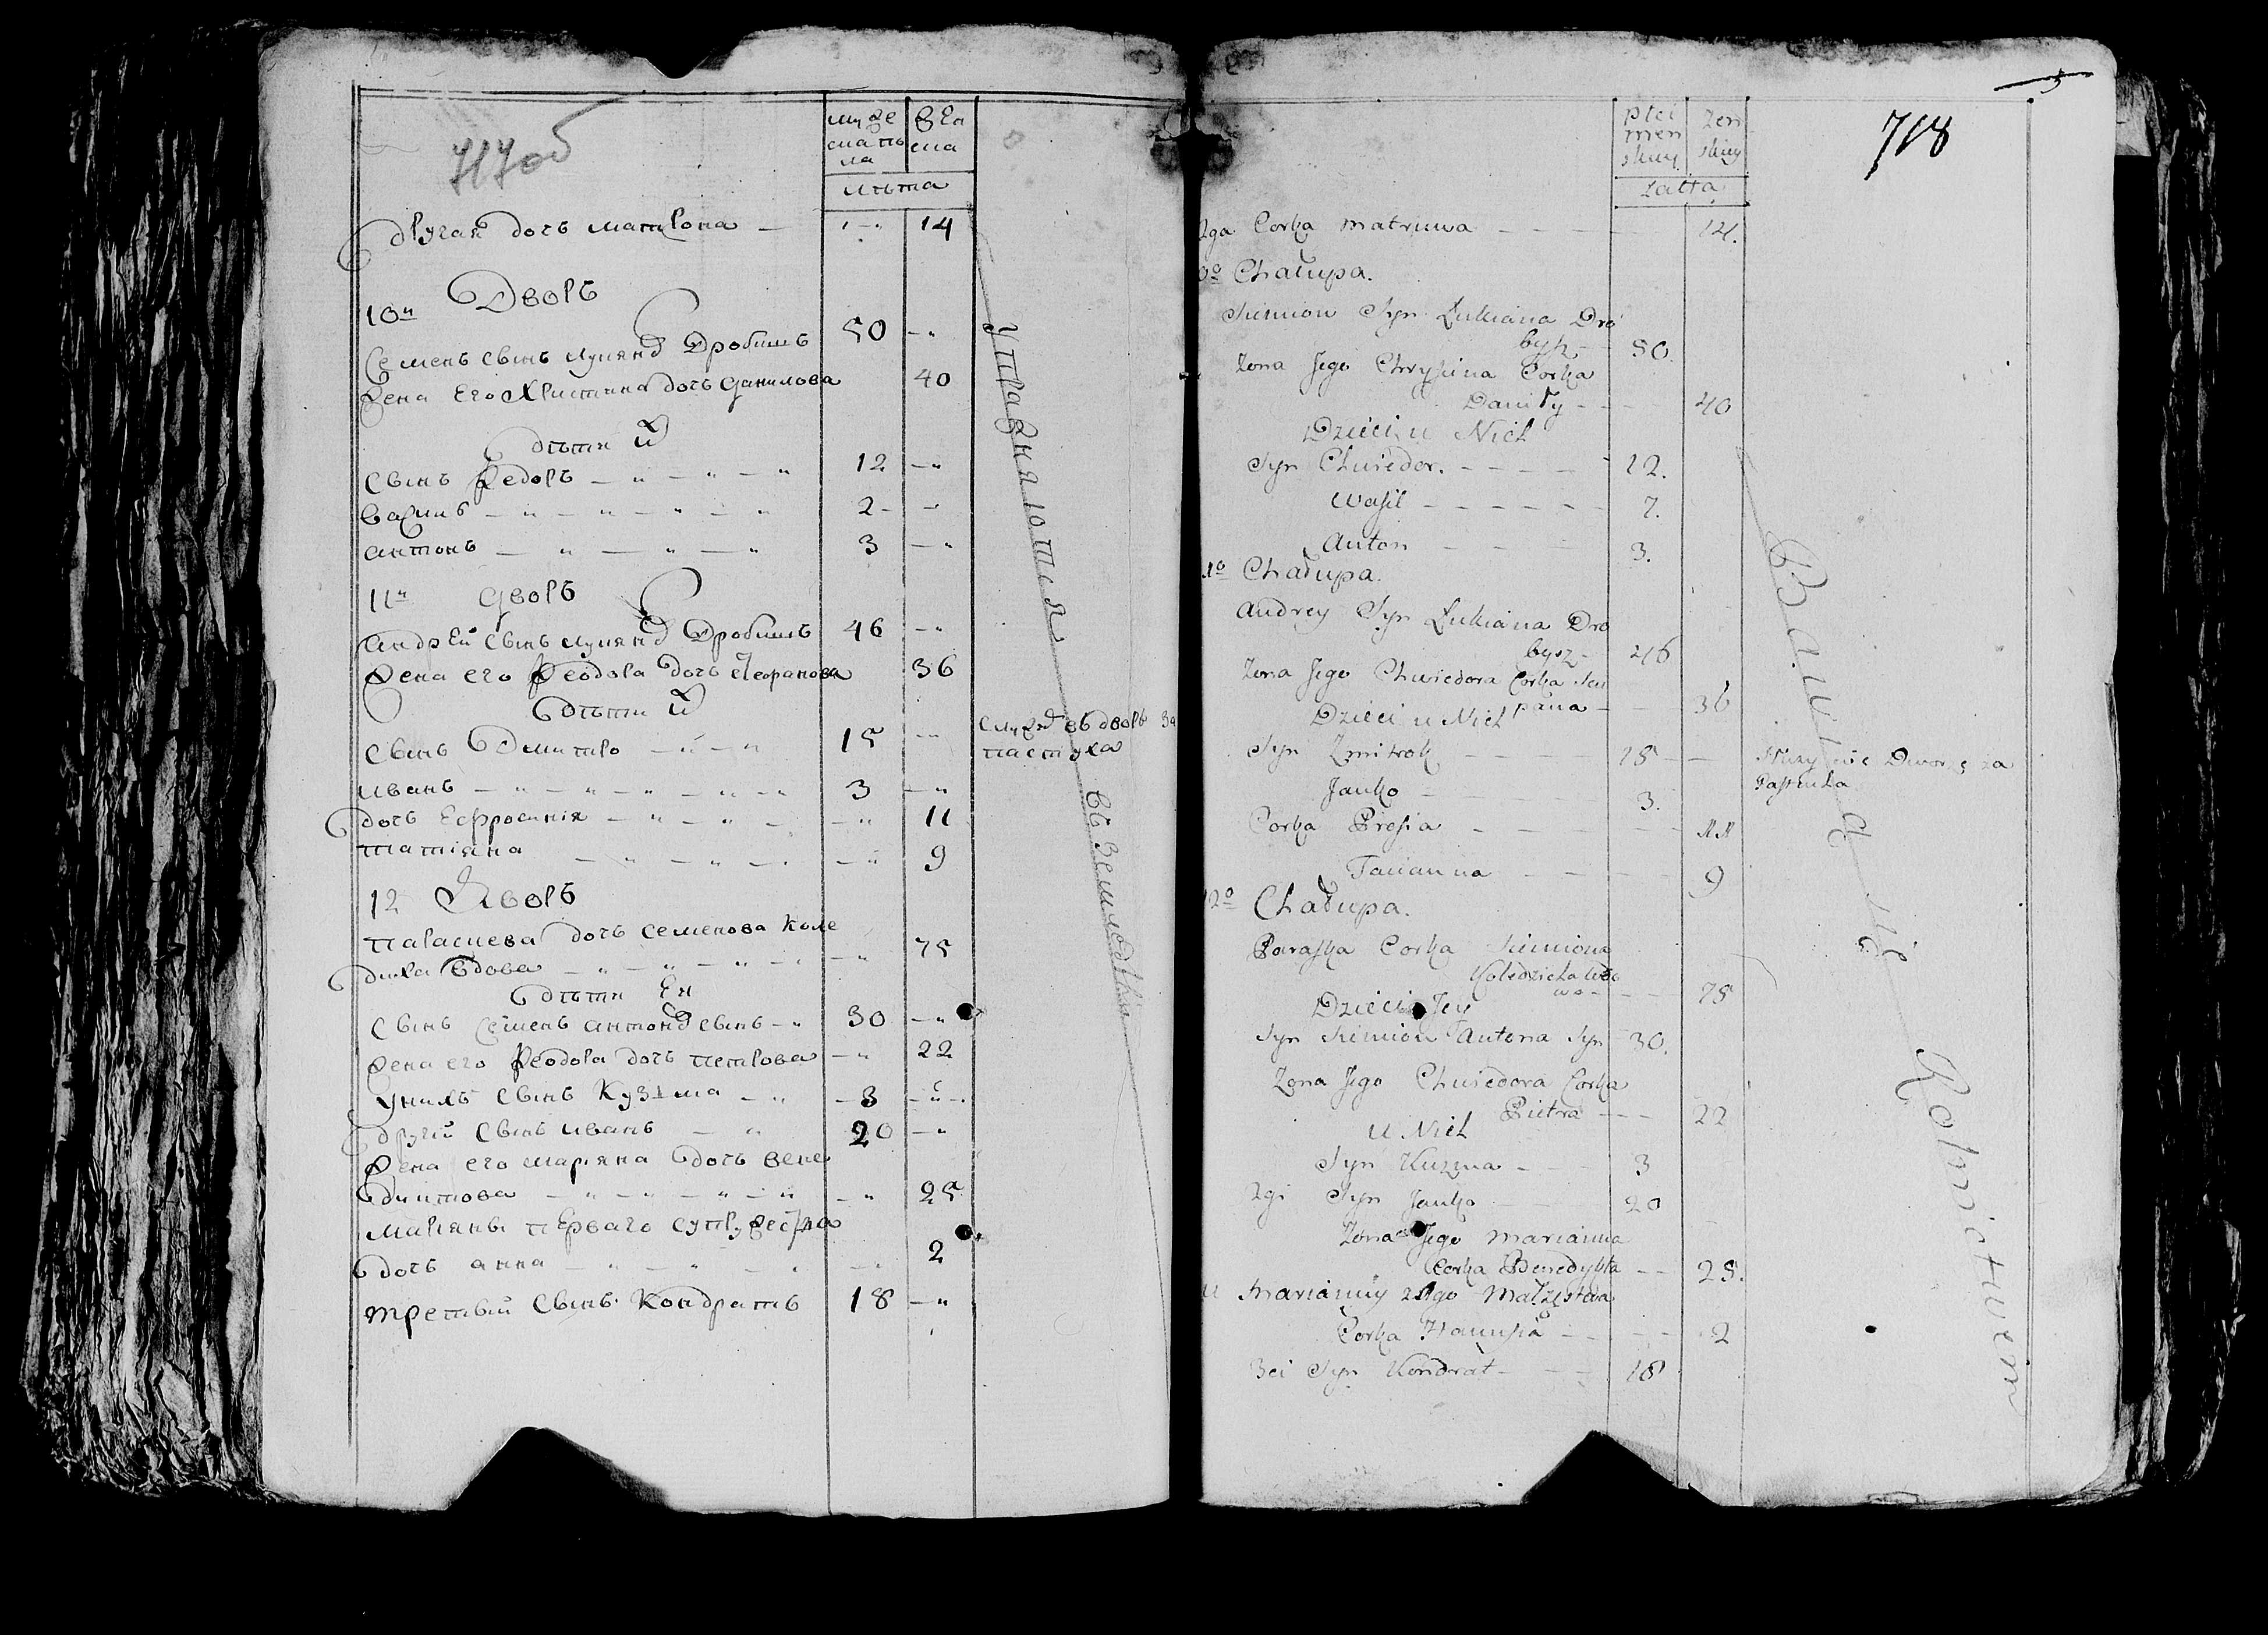 717об
муже
скагпо
ла
жен
ска
лѣта
другая дочь матрона — 14
10й Дворъ
Семенъ сынъ лукянѣ Дробышъ 50
жена его Христина дочь данилова 40
дѣти ихъ
сынъ Федоръ 12
василь 2
антонъ 3
11й дворъ
андрей сынъ лукянѣ Дробышъ 46
жена его Феодора дочь степанова 36
дѣти ихъ
сынъ дмитро 15
служитъ въ дворѣ за
пастуха
иванъ 3
дочь Ефросиния 11
татіяна 9
12 дворъ
парасцева дочь семенова коле
диха вдова 75
дѣти Ея
сынъ семенъ антонѣ сынъ 30
жена его Феодора дочь петрова 22
у нихъ сынъ Кузма 3
другій сынъ иванъ 20
жена его маріяна дочь вене
диктова 25
маріяны перваго супружества
дочь анна 2
третий сынъ Кондратъ 18
упражняются въ земледѣлии
718
płci
męn
skiey
żen
skiey
Latta
2ga Corka matruna 14.
0º Chałupa.
Siemion Syn Łukiana Dro
bysz 50.
Zona Jego Chrystina Corka
Daniły 40
Dzieci u Nich
Syn Chwiedor. 12.
Wasil 2.
Anton 3.
11º Chałupa.
Andrey Syn Łukiana Dro
bysz 46
Zona Jego Chwiedora Corka Sci
pana 36
Dzieci u Nich
Syn Zmitrok 15
Służy we Dworze za
Pastucha
Janko 3.
Corka Prosia 11
Tacianna 9
12º Chałupa.
Paraska Corka Siemiona
Koledzicha wdo
wa 75
Dzieci Jey
Syn Siemion Antona Syn 30.
Zona Jego Chwiedora Corka
Pietra 22
U Nich
Syn Kuzma 3
2gi Syn Janko 20
Zona Jego marianna
Corka Benedykta 25.
U marianny z 1go małzęstwa
Corka Hanusia 2
3ci Syn Kondrat 18
Bawią się Rolnictwem